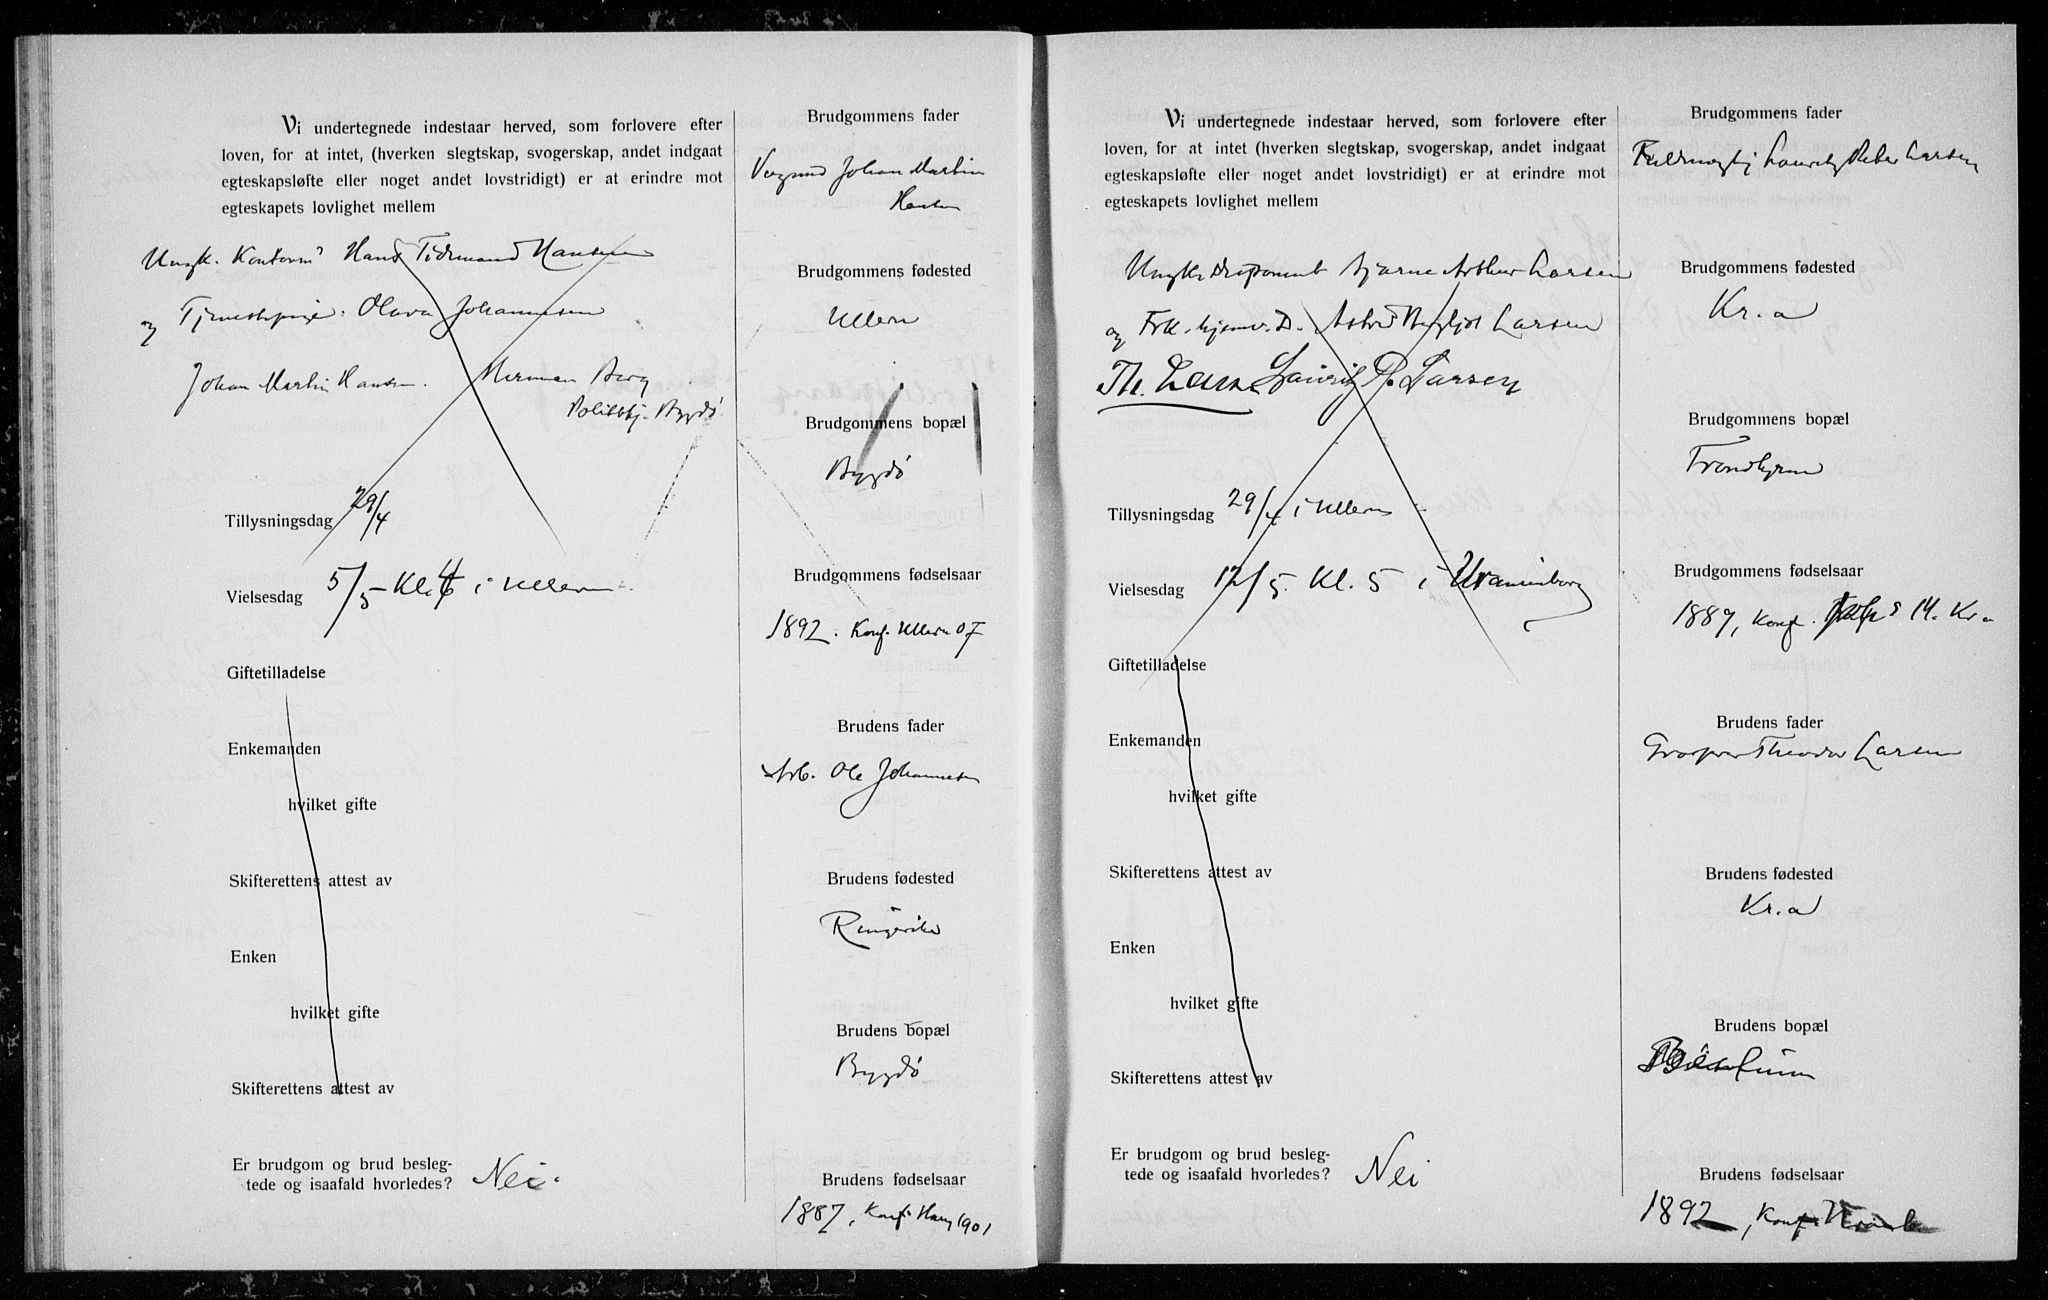 Vi undertegnede indestaar herved, som forlovere efter
loven, for at intet, (hverken slegtskap, svogerskap, andet indgaat
egteskapsløfte eller noget andet lovstridigt) er at erindre mot
egteskapets lovlighet mellem
Ungk. Kontorm. Hans Tidemand Hansen
og Tjenestepige. Olava Johannesen
Johan Martin Hansen. Herman Berg
Politibtj. Bygdø
Tillysningsdag 29/4
Vielsesdag 5/5 Kl. 4 i Ullern
Giftetilladelse
Enkemanden
hvilket gifte
Skifterettens attest av
Enken
hvilket gifte
Skifterettens attest av
Er brudgom og brud besleg-
tede og isaafald hvorledes? Nei.
Brudgommens fader
Johan Martin
Hansen
Brudgommens fødested
Ullern
Brudgommens bopæl
Bygdø
Brudgommens fødselsaar
1892. Konf. Ullern 07
Brudens fader
Arb. Ole Johannesen
Brudens fødested
Ringerike
Brudens bopæl
Bygdø
Brudens fødselsaar
1887, Konf. Haug 1901
Vi undertegnede indestaar herved, som forlovere efter
loven, for at intet, (hverken slegtskap, svogerskap, andet indgaat
egteskapsløfte eller noget andet lovstridigt) er at erindre mot
egteskapets lovlighet mellem
Ungk. Disponent Bjarne Arthur Larsen
og Frk. hjemv. D. Astrid Bergljot Larsen
Th. Larsen Lauritz P. Larsen
Tillysningsdag 29/4 i Ullern
Vielsesdag 12/5. Kl. 5 i Uranienborg
Giftetilladelse
Enkemanden
hvilket gifte
Skifterettens attest av
Enken
hvilket gifte
Skifterettens attest av
Er brudgom og brud besleg-
tede og isaafald hvorledes? Nei
Brudgommens fader
Fuldmægtig Lauritz Peter Larsen
Brudgommens fødested
Kr.a
Brudgommens bopæl
Trondhjem
Brudgommens fødselsaar
1889, Konf. Kr.a
Brudens fader
Grosserer Theodor Larsen
Brudens fødested
Kr.a
Brudens bopæl
Bestum
Brudens fødselsaar
1892, Konf.